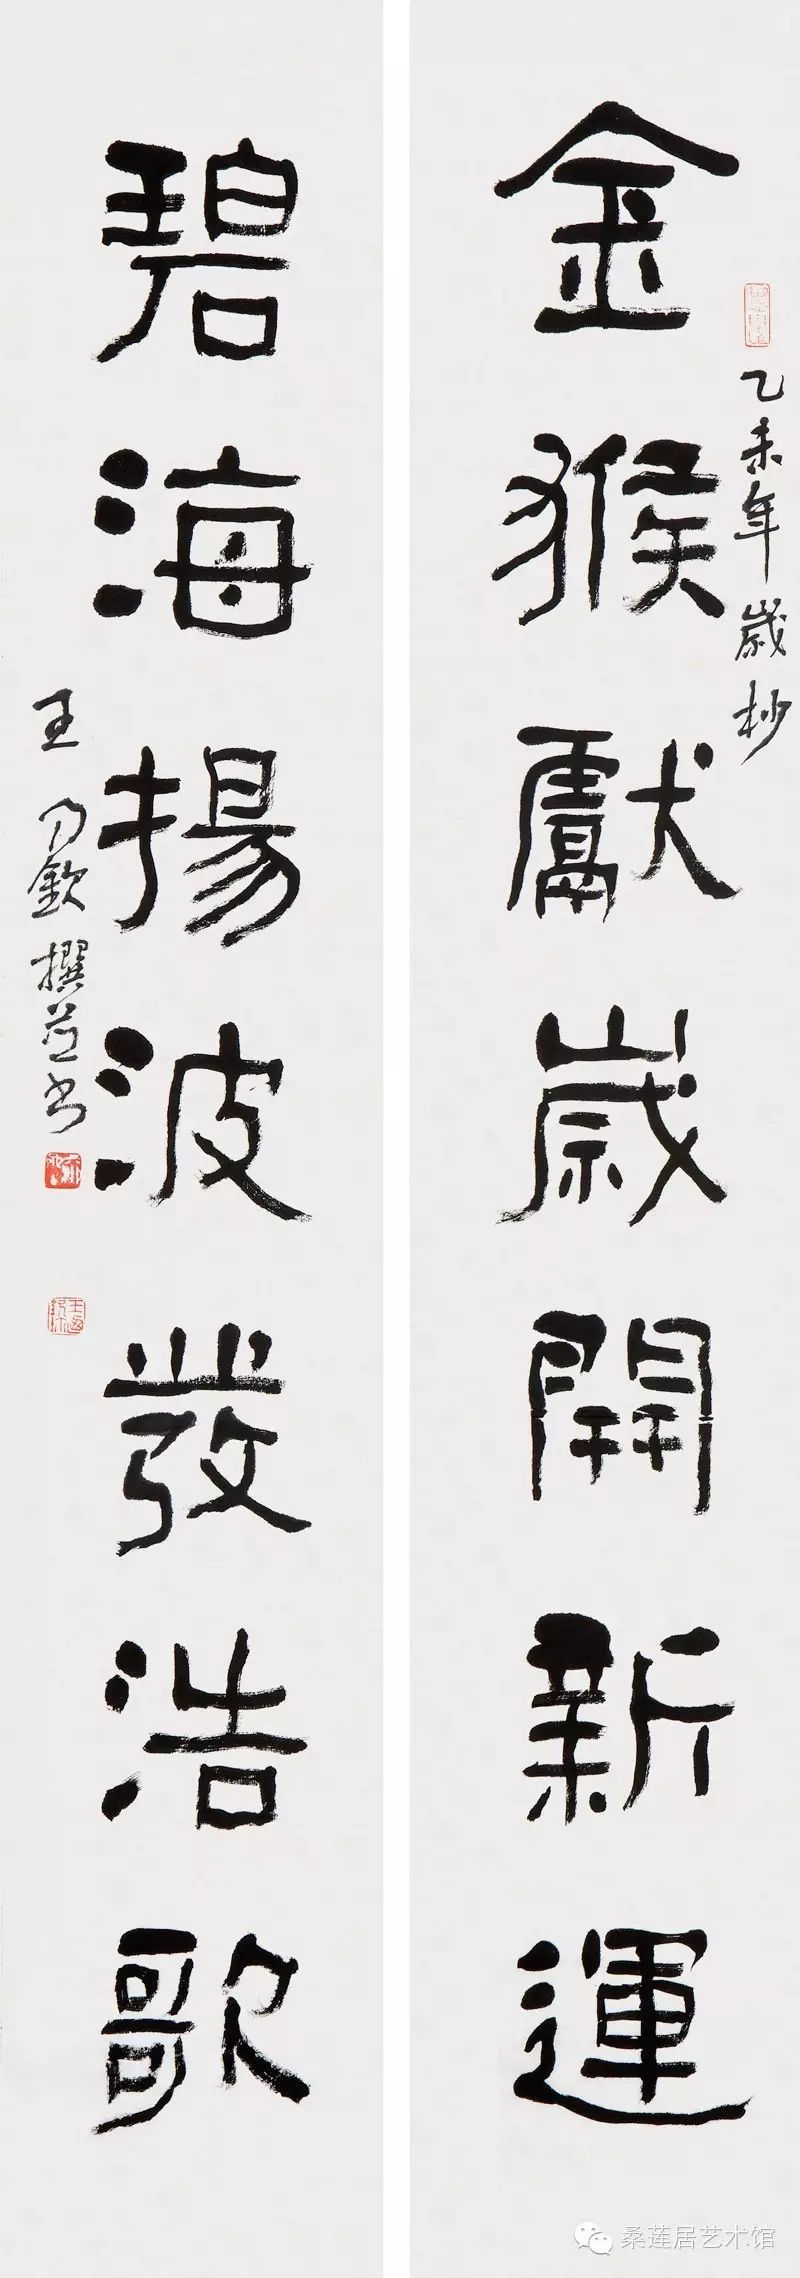 金猴獻歲開新運
乙未年歲杪
碧海揚波發浩歌
王乃欽撰並書
桑莲居艺术馆